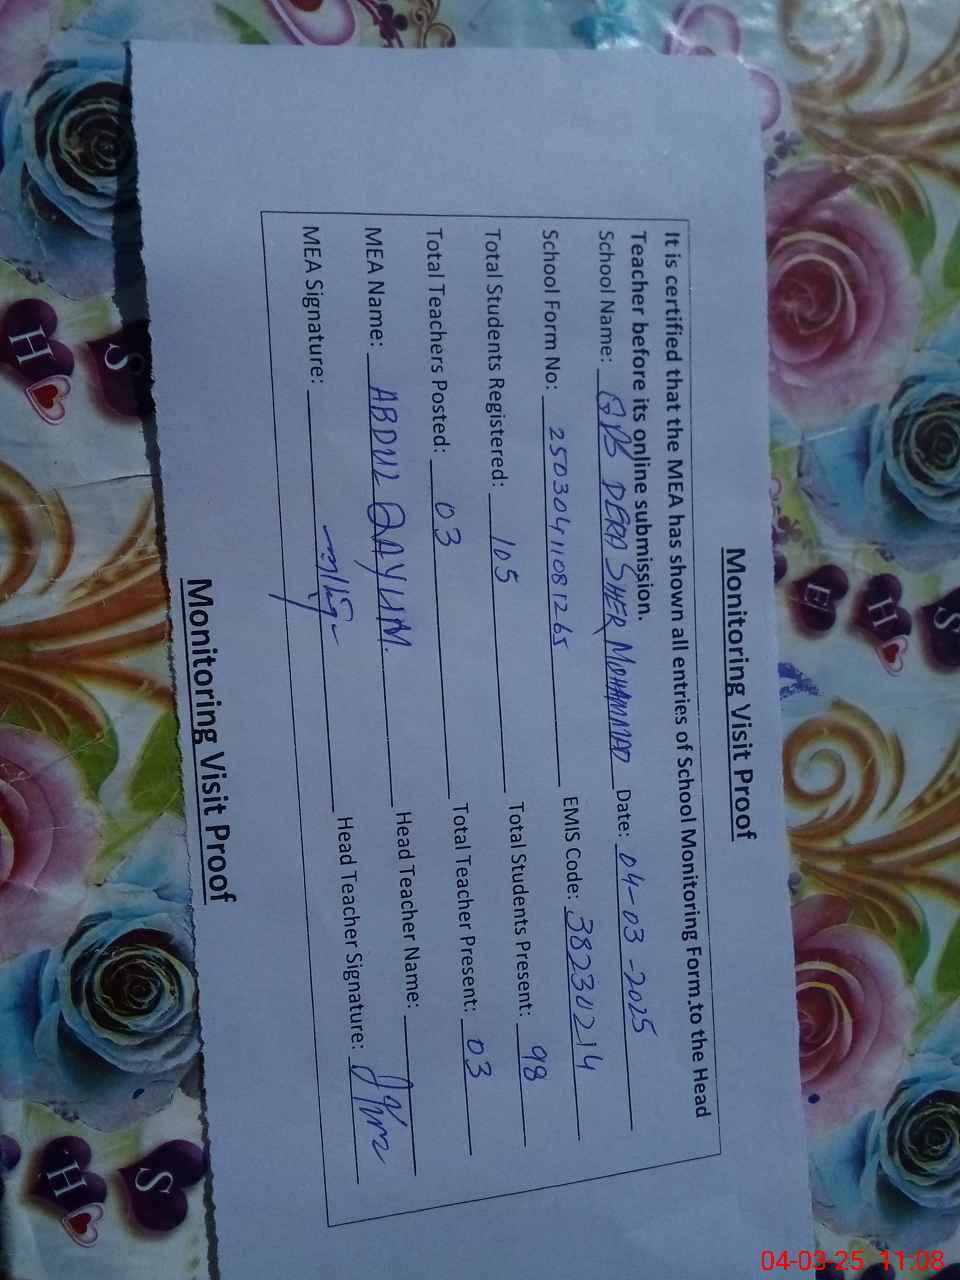 Monitoring Visit Proof
It is certified that the MEA has shown all entries of School Monitoring Form to the Head
Teacher before its online submission.
School Name: DERA SHER MOHAMMAD Date: 04-03-2025
School Form No: 25030411081265 EMIS Code: 38230214
Total Students Registered: 105 Total Students Present: 98
Total Teachers Posted: 03 Total Teacher Present: 03
MEA Name: ABDUL QAYUM. Head Teacher Name:
MEA Signature: Head Teacher Signature:
Monitoring Visit Proof
S
H
S
H
E
S
H
04-03-25 11:08